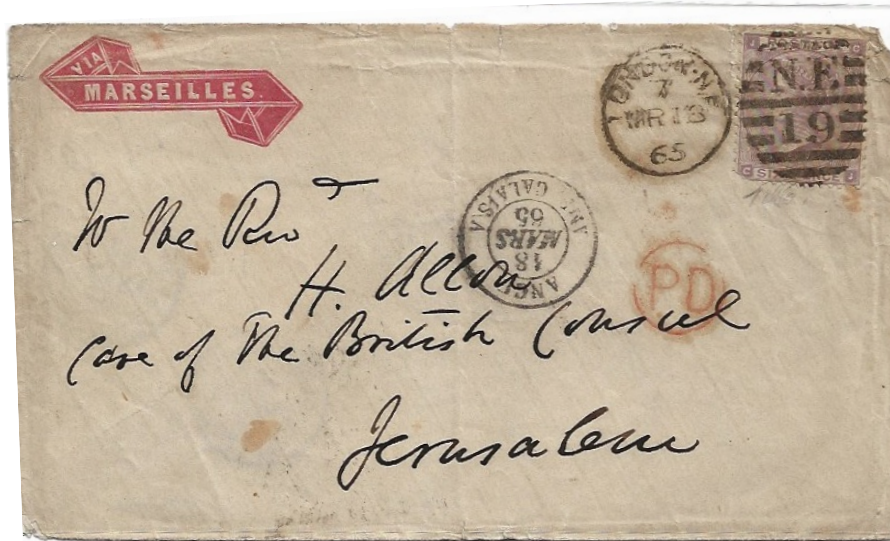 VIA
MARSEILLES
LONDON·N.E
7
MR 18
65
POSTAGE
N.E
19
SIX PENCE
ANGL.
AMB. CALAIS A
18
MARS
65
PD
To the Revd
H. Allon
Care of The British Consul
Jerusalem